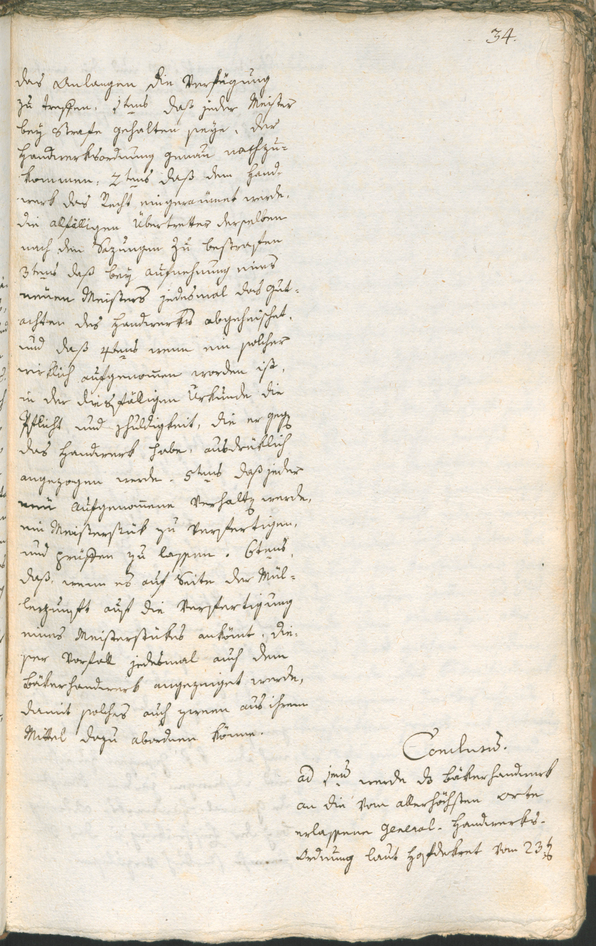 34.
das Anlangen die Verfügung
zu treffen, 1tens daß jeder Meister
bey Strafe gehalten seye, der
Handwerksordnung genau nachzu-
kommen, 2tens daß dem Hand-
werk das Recht eingeraumet werde,
die alfälligen Übertretter derselben
nach den Sazungen zu bestrafen
3tens daß bey aufnehmung eines
neuen Meisters jedesmal das Gut-
achten des Handwerks abgeheischet,
und daß 4tens wenn ein solcher
wirklich aufgenommen worden ist,
in der diesfälligen Urkunde die
Pflicht und Schuldigkeit, die er geg
das Handwerk habe, ausdrüklich
angezogen werde. 5tens daß jeder
neü Aufgenommene verhalt werde,
ein Meisterstük zu verfertigen,
und prüffen zu lassen. 6tens,
daß, wenn es auf Seite der Mül-
lerzunft auf die Verfertigung
eines Meisterstükes ankömt, die-
ser Vorfall jedesmal auch dem
Bäkerhandwerk angezeiget werde,
damit solches auch zween aus ihrem
Mittel dazu abordnen könne.
Conclusum.
ad 1mum werde ds Bäkerhandwerk
an die vom allerhöchsten Orte
erlassene General-Handwerks-
Ordnung laut Hofdekret vom 23t